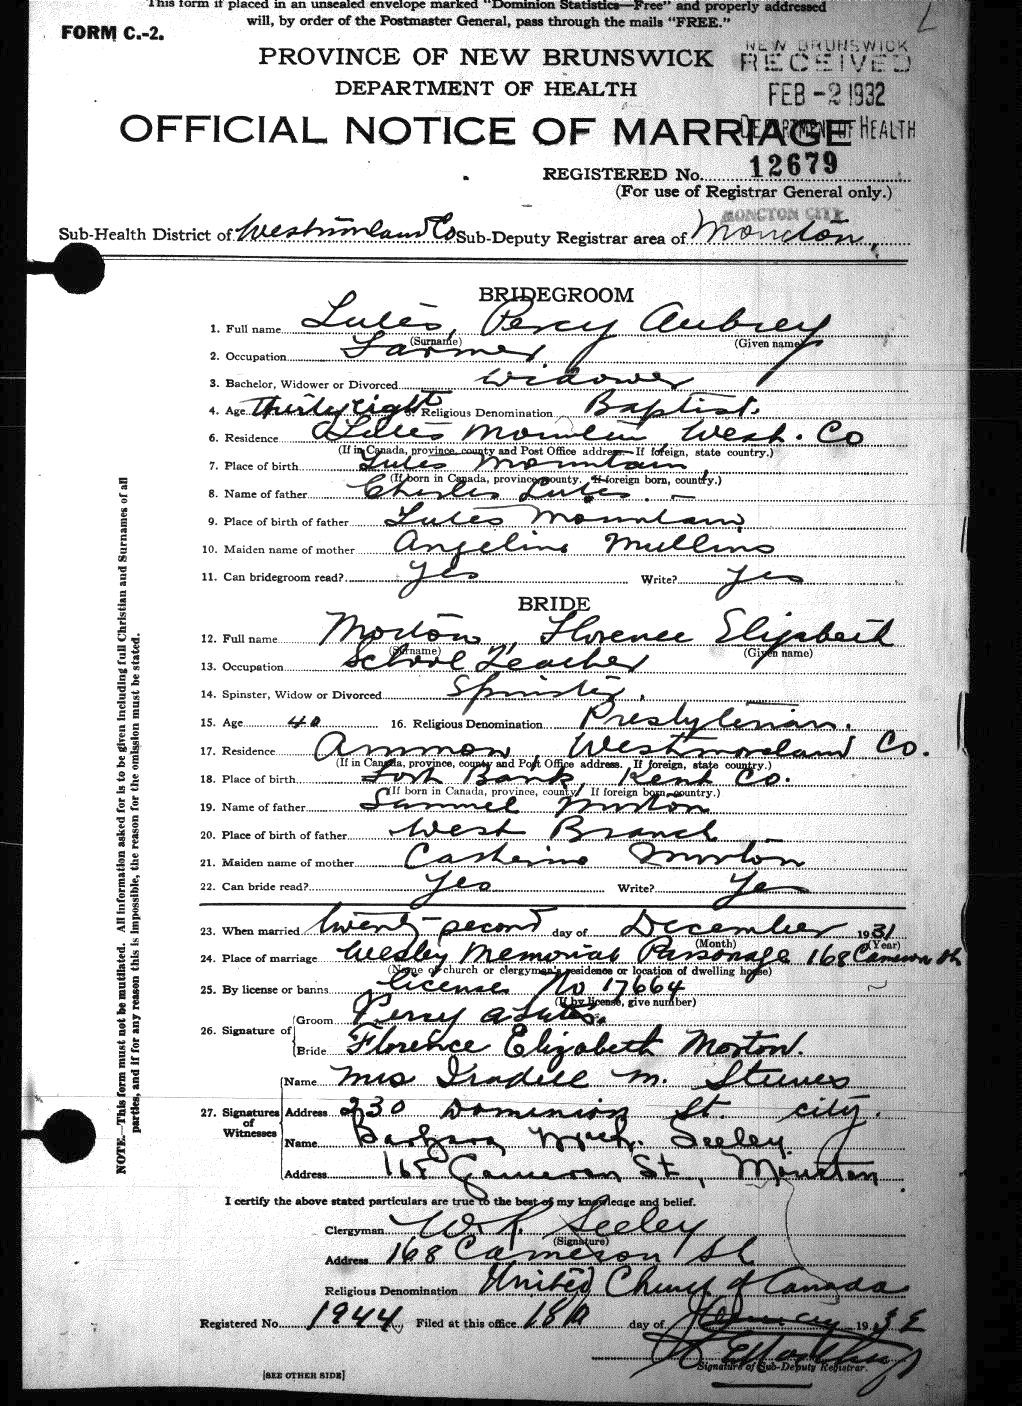 This form if placed in an unsealed envelope marked "Dominion Statistics—Free" and properly addressed
will, by order of the Postmaster General, pass through the mails "FREE."
FORM C.-2.
PROVINCE OF NEW BRUNSWICK
DEPARTMENT OF HEALTH
NEW BRUNSWICK
RECEIVED
FEB -2 1932
DEPARTMENT OF HEALTH
OFFICIAL NOTICE OF MARRIAGE
REGISTERED No. 12679
(For use of Registrar General only.)
MONCTON CITY
Sub-Health District of Westmorland Co Sub-Deputy Registrar area of Moncton,
BRIDEGROOM
1. Full name Lutes, Percy Aubrey
(Surname) (Given name)
2. Occupation Farmer
3. Bachelor, Widower or Divorced Widower
4. Age Thirty eight 5. Religious Denomination Baptist.
6. Residence Lutes Mountain, West. Co
(If in Canada, province, county and Post Office address. If foreign, state country.)
7. Place of birth Lutes Mountain,
(If born in Canada, province, county. If foreign born, country.)
8. Name of father Charles Lutes. —
9. Place of birth of father Lutes Mountain
10. Maiden name of mother Angeline Mullins
11. Can bridegroom read? yes Write? yes
BRIDE
12. Full name Morton, Florence Elizabeth
(Surname) (Given name)
13. Occupation School Teacher
14. Spinster, Widow or Divorced Spinster.
15. Age 40 16. Religious Denomination Presbyterian.
17. Residence Ammon, Westmoreland Co.
(If in Canada, province, county and Post Office address. If foreign, state country.)
18. Place of birth Bank Kent Co.
(If born in Canada, province, county. If foreign born, country.)
19. Name of father Samuel Morton
20. Place of birth of father West Branch
21. Maiden name of mother Catherine Morton
22. Can bride read? Yes Write? Yes
23. When married twenty-second day of December 1931
(Month) (Year)
24. Place of marriage Wesley Memorial Parsonage 168 Cameron St
(Name of church or clergyman's residence or location of dwelling house)
25. By license or banns license No 17664
(If by license, give number)
26. Signature of
Groom Percy A Lutes.
Bride Florence Elizabeth Morton.
27. Signatures of Witnesses
Name Mrs M. Steeves
Address 230 Dominion St. city.
Name Barbara Seeley
Address 168 Cameron St., Moncton.
I certify the above stated particulars are true to the best of my knowledge and belief.
Clergyman W. R. Seeley
(Signature)
Address 168 Cameron St
Religious Denomination United Church of Canada
Registered No. 1944 Filed at this office 18th day of January 1932
Signature of Sub-Deputy Registrar.
[SEE OTHER SIDE]
NOTE.—This form must not be mutilated. All information asked for is to be given including full Christian and Surnames of all
parties, and if for any reason this is impossible, the reason for the omission must be stated.